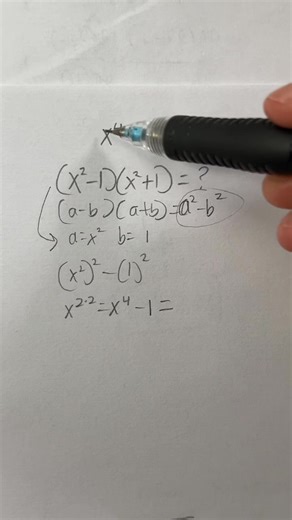 x⁴
(x²-1)(x²+1) = ?
(a-b)(a+b) = a²-b²
a=x² b= 1
(x²)² - (1)²
x²·² = x⁴ - 1 =